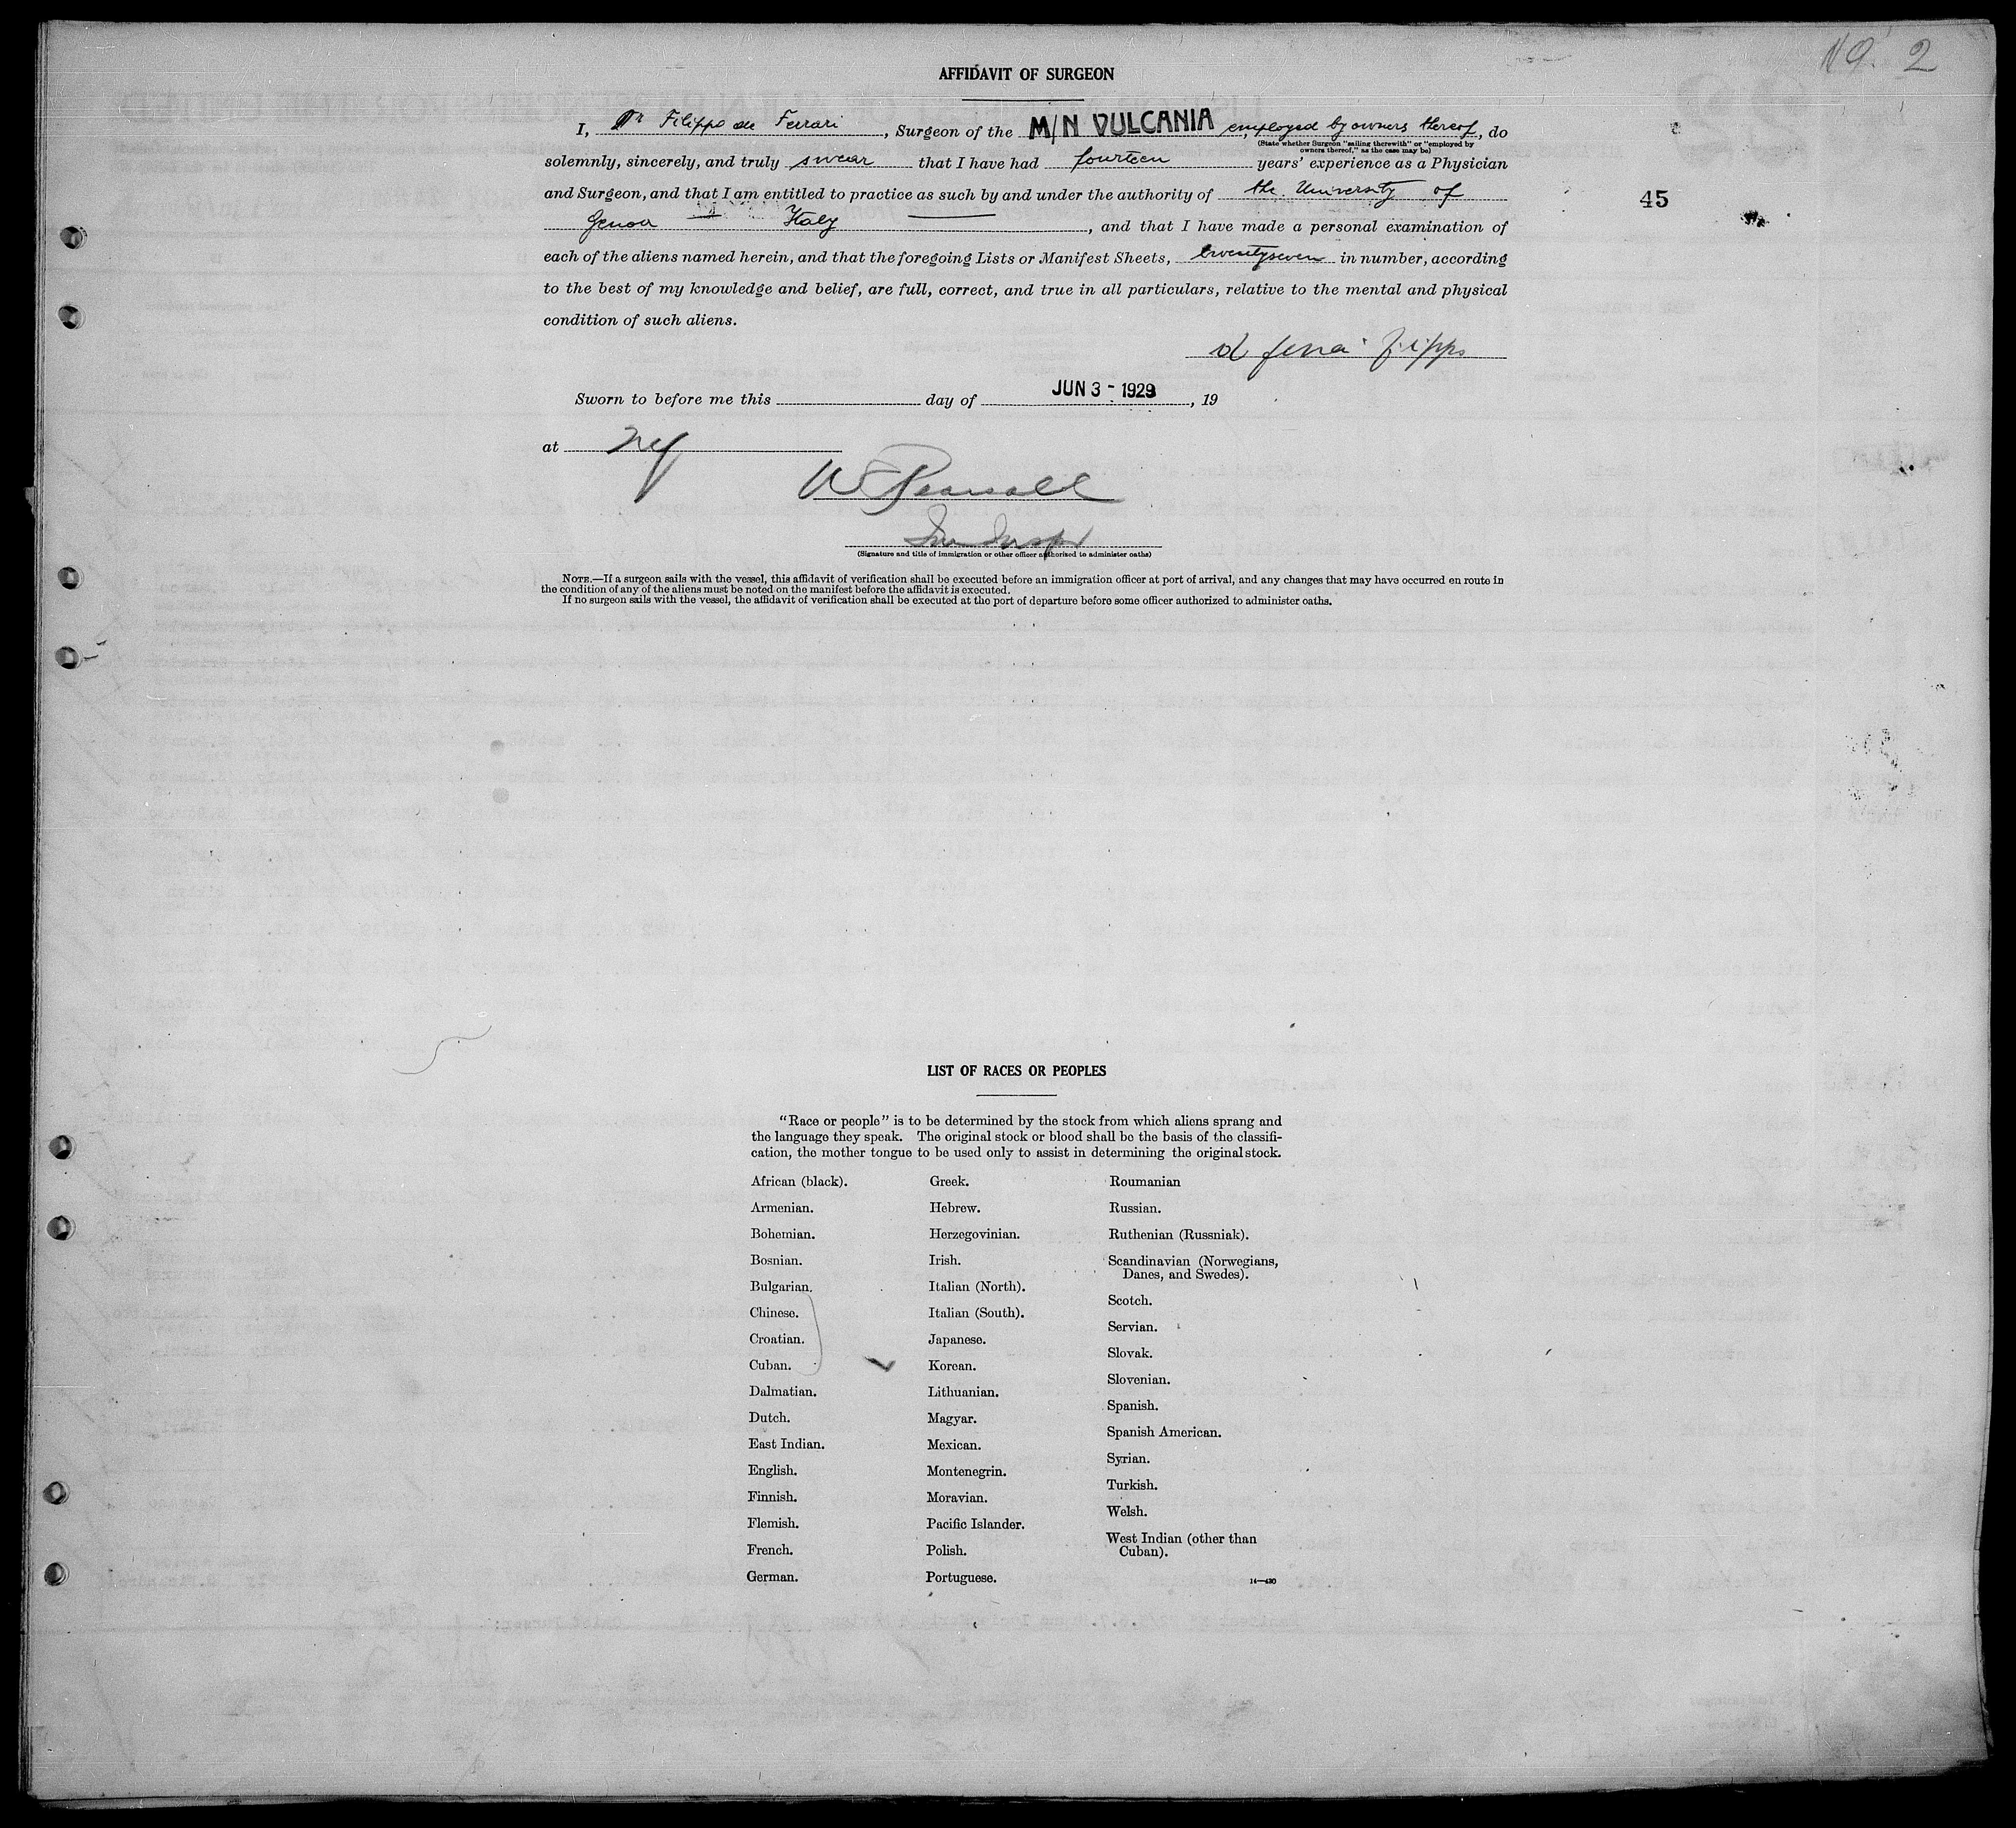 No. 2
AFFIDAVIT OF SURGEON
I, Dr Filippo de Ferrari, Surgeon of the M/N VULCANIA employed by owners thereof, do
(State whether Surgeon "sailing therewith" or "employed by
owners thereof," as the case may be)
solemnly, sincerely, and truly swear that I have had fourteen years' experience as a Physician
and Surgeon, and that I am entitled to practice as such by and under the authority of the University of
45
Genoa Italy, and that I have made a personal examination of
each of the aliens named herein, and that the foregoing Lists or Manifest Sheets, twentyseven in number, according
to the best of my knowledge and belief, are full, correct, and true in all particulars, relative to the mental and physical
condition of such aliens.
Sworn to before me this day of JUN 3 - 1929, 19
at NY
W Pearsall
Imm Inspr
(Signature and title of immigration or other officer authorized to administer oaths)
NOTE.—If a surgeon sails with the vessel, this affidavit of verification shall be executed before an immigration officer at port of arrival, and any changes that may have occurred en route in
the condition of any of the aliens must be noted on the manifest before the affidavit is executed.
If no surgeon sails with the vessel, the affidavit of verification shall be executed at the port of departure before some officer authorized to administer oaths.
LIST OF RACES OR PEOPLES
"Race or people" is to be determined by the stock from which aliens sprang and
the language they speak. The original stock or blood shall be the basis of the classifi-
cation, the mother tongue to be used only to assist in determining the original stock.
African (black).
Armenian.
Bohemian.
Bosnian.
Bulgarian.
Chinese.
Croatian.
Cuban.
Dalmatian.
Dutch.
East Indian.
English.
Finnish.
Flemish.
French.
German.
Greek.
Hebrew.
Herzegovinian.
Irish.
Italian (North).
Italian (South).
Japanese.
Korean.
Lithuanian.
Magyar.
Mexican.
Montenegrin.
Moravian.
Pacific Islander.
Polish.
Portuguese.
Roumanian
Russian.
Ruthenian (Russniak).
Scandinavian (Norwegians,
Danes, and Swedes).
Scotch.
Servian.
Slovak.
Slovenian.
Spanish.
Spanish American.
Syrian.
Turkish.
Welsh.
West Indian (other than
Cuban).
14—430